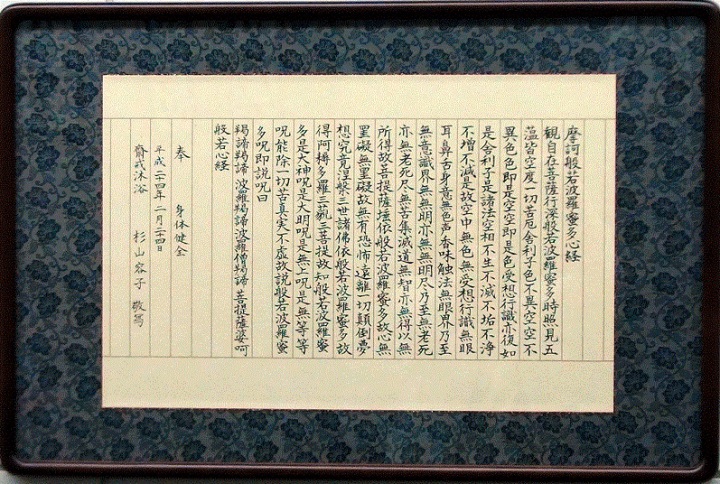 摩訶般若波羅蜜多心経
観自在菩薩行深般若波羅蜜多時照見五
薀皆空度一切苦厄舎利子色不異空空不
異色色即是空空即是色受想行識亦復如
是舎利子是諸法空相不生不滅不垢不浄
不増不減是故空中無色無受想行識無眼
耳鼻舌身意無色声香味触法無眼界乃至
無意識界無無明亦無無明尽乃至無老死
亦無老死尽無苦集滅道無智亦無得以無
所得故菩提薩埵依般若波羅蜜多故心無
罣礙無罣礙故無有恐怖遠離一切顛倒夢
想究竟涅槃三世諸佛依般若波羅蜜多故
得阿耨多羅三藐三菩提故知般若波羅蜜
多是大神呪是大明呪是無上呪是無等等
呪能除一切苦真実不虚故説般若波羅蜜
多呪即説呪曰
羯諦羯諦 波羅羯諦 波羅僧羯諦 菩提薩婆呵
般若心経
奉 身体健全
平成二十四年二月二十四日
齋戒沐浴 杉山容子 敬写